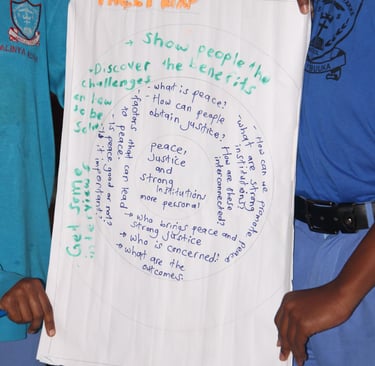 → Show people the
→ Discover the benefits
challenges
on how
to be
Solved
Get some
interviews
- what is peace?
- How can people
obtain justice?
factors that can lead
to peace.
- Is peace good or not?
is it important?
- How can we promote peace
- what are strong
institutions?
How are these
interconnected?
peace,
Justice
and
strong
Institution
more personal
→ who brings peace and
strong justice
→ who is concerned?
→ what are the
outcomes.